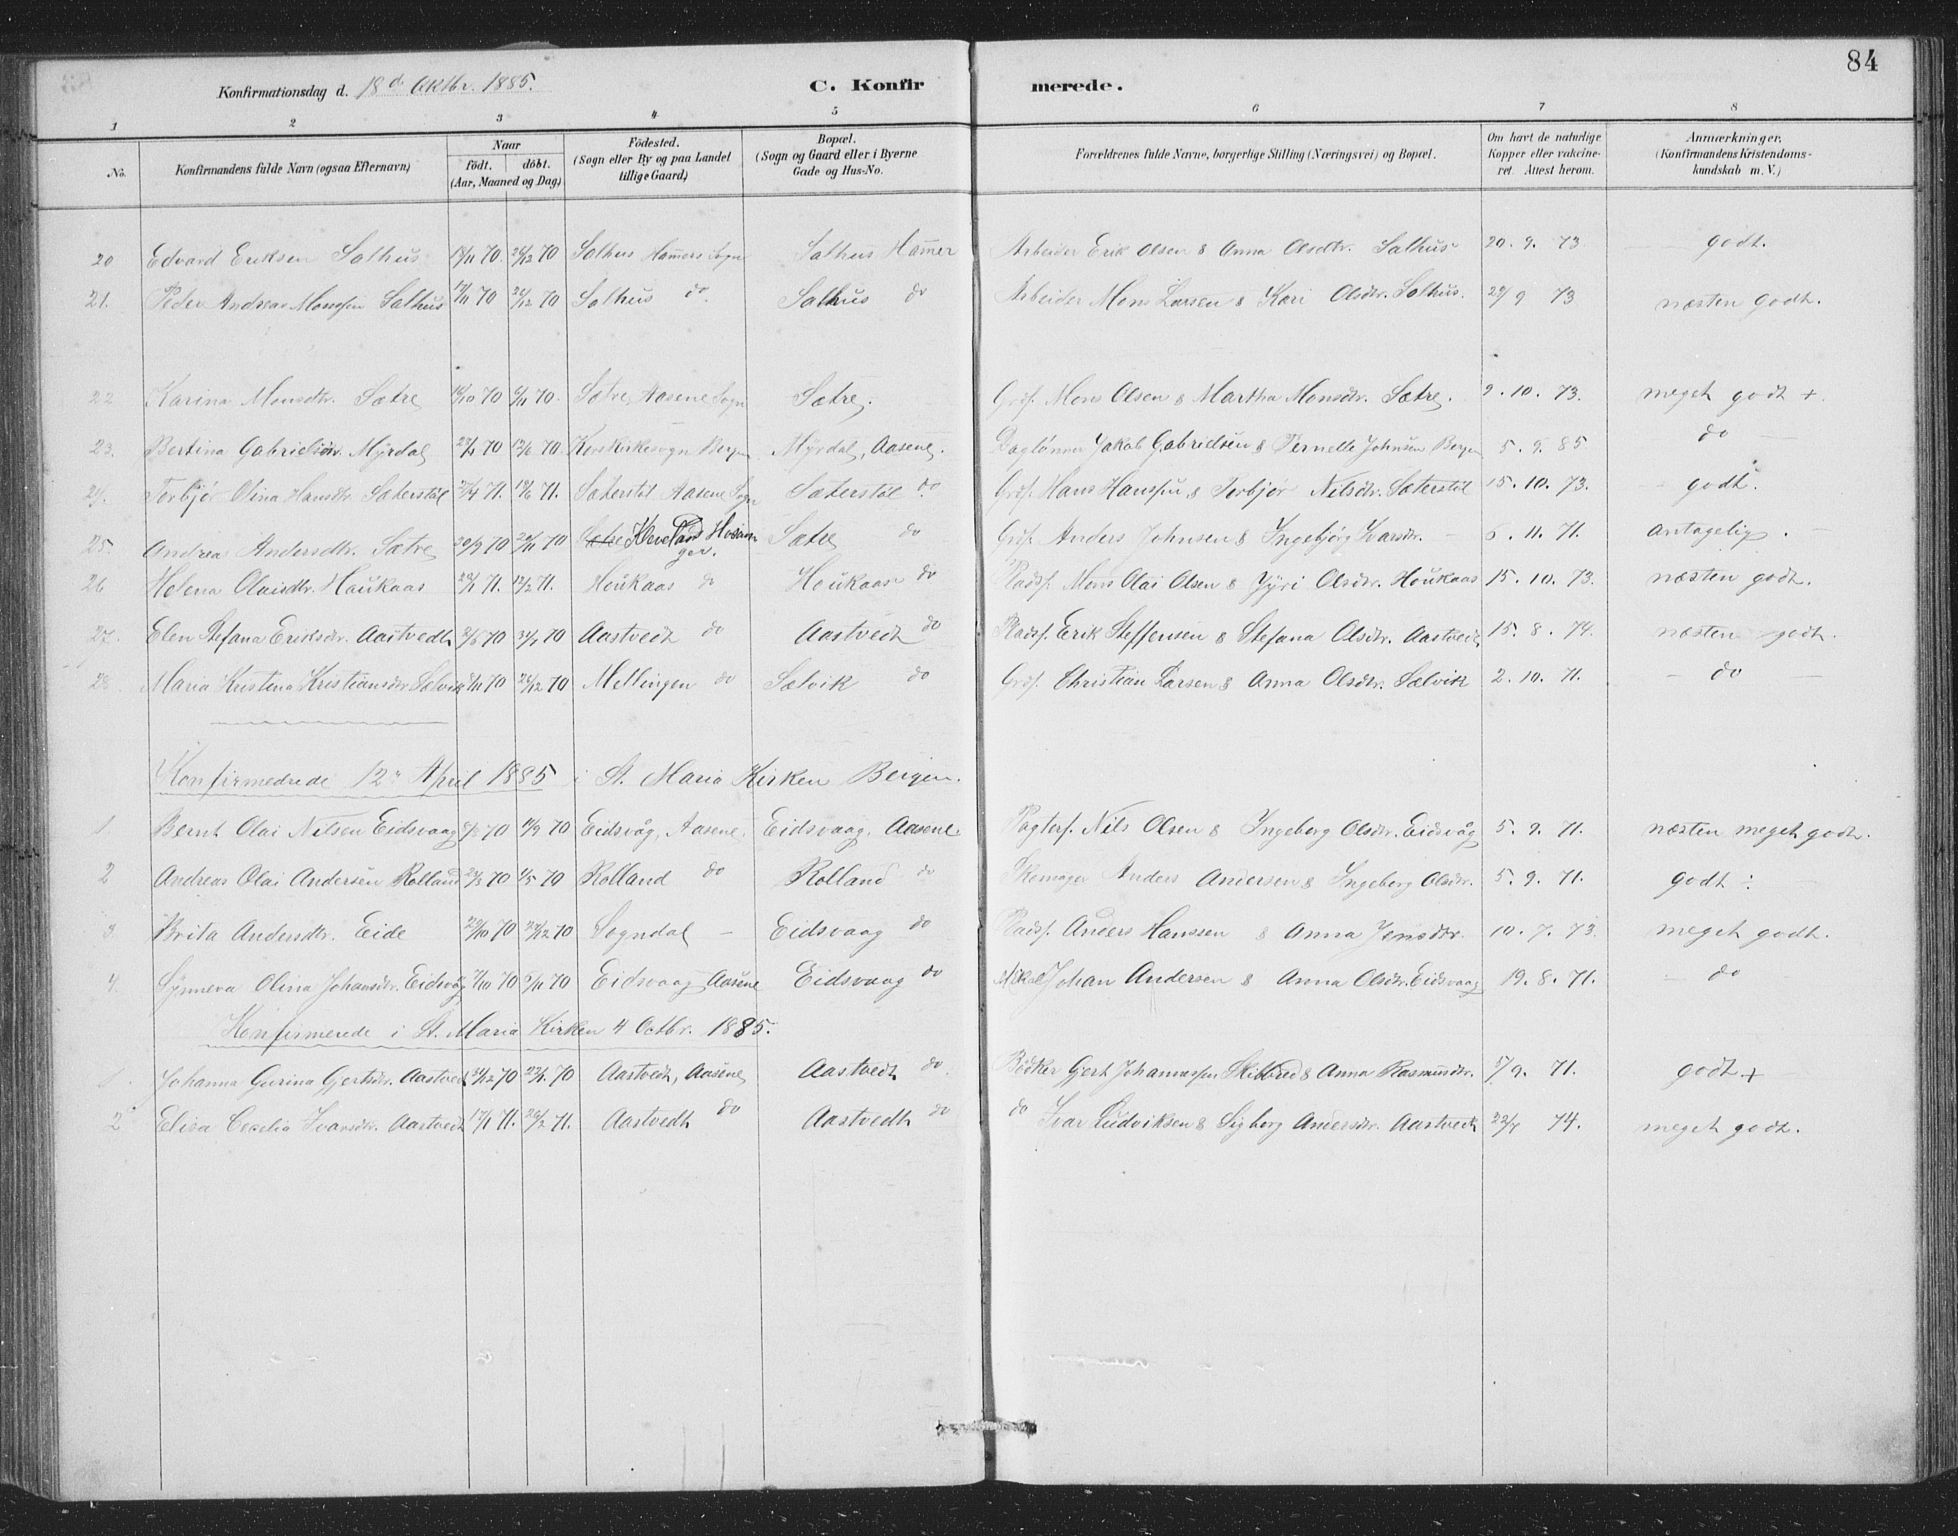 84
Konfirmationsdag d. 18d Oktbr. 1885. C. Konfirmerede.
1 2 3 4 5 6 7 8
No. Konfirmandens fulde Navn (ogsaa Efternavn) Naar födt. döbt. (Aar, Maaned og Dag) Födested. (Sogn eller By og paa Landet tillige Gaard) Bopæl. (Sogn og Gaard eller i Byerne Gade og Hus-No. Forældrenes fulde Navne, borgerlige Stilling (Næringsvei) og Bopæl. Om havt de naturlige Kopper eller vakcineret. Attest herom. Anmærkninger. (Konfirmandens Kristendomskundskab m. V.)
20 Edvard Eriksen Salhus 70. 26/12 70 Salhus Hamers Sogn Salhus Hamer Arbeider Erik Olsen & Anna Olsdtr. Salhus 20. 9. 73. godt.
21. Peder Andreas Monssen Salhus 70 26/12 70 Salhus do. Salhus do Arbeider Mons Larsen & Kari Olsdtr. Salhus. 29/9 73 næsten godt.
22 Karina Monsdtr. Sætre 70 6/11 70. Sætre, Aasene Sogn Sætre. Grdf. Mons Olsen & Martha Monsdtr. Sætre. 2. 10. 73. meget godt +.
23. Bertina Gabrielsdtr. Myrdal 70 12/6 70. Korskirkesogn Bergen Myrdal, Aasene. Daglönner Jakob Gabrielsen & Pernelle Johnsen Bergen 5. 9. 85 do
24. Torbjør Olina Hansdtr. Sæterstöl 71. 18/6 71. Sæterstöl Aasene Sogn Sæterstöl do. Grdf. Hans Hanssen & Torbjør Nilsdtr. Sæterstöl 15. 10. 73. godt.
25. Andrea Andersdtr. Sætre 20/9 70 70 Kleveland Hosanger. Sætre do Grdf. Anders Johnsen & Ingebjørg Ivarsdtr. 6. 11. 71. antagelig.
26 Helena Olaisdtr. Haukaas 71. 12/2 71. Houkaas do Houkaas do Pladsf. Mons Olai Olsen & Jyri Olsdtr. Houkaas 15. 10. 73. næsten godt.
27. Elen Stefana Eriksdtr. Aastvedt 70 31/7 70 Aastvedt do Aastvedt do Pladsf. Erik Steffensen & Stefana Olsdtr. Aastvedt 15. 8. 74. næsten godt.
28 Maria Kristina Kristiansdtr. Sælvik 70 26/12 70 Mellingen do Sælvik do Grdf. Christian Larsen & Anna Olsdtr. Sælvik 2. 10. 71. do
Konfirmedrede 12te April 1885 i St. Maria Kirken Bergen.
1 Bernt Olai Nilsen Eidsvaag 70 11/9 70 Eidsvåg, Aasene. Eidsvaag, Aasene. Pagterf. Nils Olsen & Ingeborg Olsdtr. Eidsvåg 5. 9. 71. næsten meget godt.
2 Andreas Olai Andersen Rolland 70 1/5 70 Rolland do Rolland do Skomager Anders Andersen & Ingeborg Olsdtr. 5. 9. 71. godt ÷
3 Brita Andersdtr. Eide 70 70 Sogndal – Eidsvaag do Pladsf. Anders Hanssen & Anna Jensdtr. 10. 7. 73. meget godt.
4. Synneva Olina Johansdtr. Eidsvåg 7/10 70 6/11 70 Eidsvaag, Aasene Eidsvaag do Johan Andersen & Anna Olsdtr. Eidsvaag 19. 8. 71. do
Konfirmerede i St. Maria Kirken 4 Octbr. 1885.
1. Johanna Gurina Gjertsdtr. Aastvedt 70 70 Aastvedt, Aasene Aastvedt do. Bödker Gjert Johannessen Skibbred & Anna Rasmusdtr. 5/9. 71. godt +
2 Elisa Cecilia Ivarsdtr. Aastvedt 17/1 71. 26/2 71. Aastvedt do Aastvedt do do Ivar Ludviksen & Sigborg Andersdtr. Aastvedt 74. meget godt.